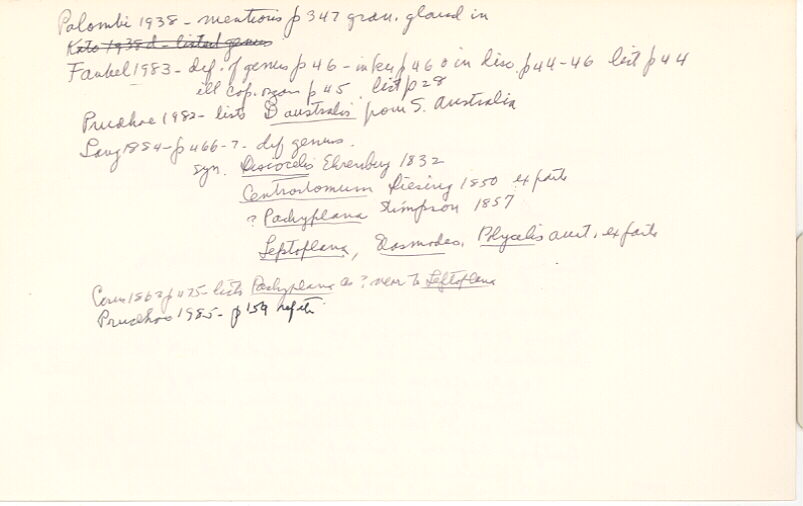 Palombi 1938 - mentions p 347 gran. gland in
Kato 1938d - listed genus
Faubel 1983 - def. of genus p 46 - in key p 46 & in disc. p 44-46 list p 44
ill cop. organ p 45 list p 28
Prudhoe 1982 - lists D australis from S. Australia
Lang 1884 - p 466-7 - def genus.
syn. Discocelis Ehrenberg 1832
Centrostomum Diesing 1850 ex parte
? Pachyplana Stimpson 1857
Leptoplana, Dasmodes, Phycelis auct. ex parte
Carus 1863 p 475 - lists Pachyplana as ? near to Leptoplana
Prudhoe 1985 - p 159